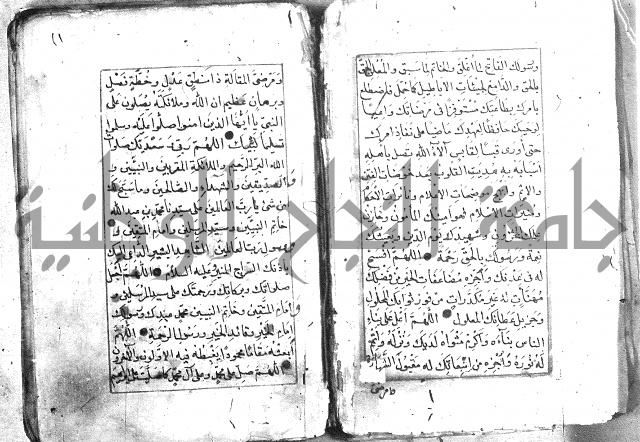 ورسولك الفاتح لما أغلق والخاتم لما سبق والمعلن الحق
بالحق والدامغ لجيشات الاباطيل كما حمل فاضطلع
بامرك بطاعتك مستوفزا في مرضاتك واعيا
لوحيك حافظا لعهدك ماضيا على نفاذ امرك
حتى أورى قبسا لقابس آلاء الله تصل باهله
اسبابه به هديت القلوب بعد خوضات الفتن
والاثم وابهج موضحات الاعلام ونائرات الاحكام
ومنيرات الاسلام فهو امينك المأمون وخازن
علمك المخزون وشهيدك يوم الدين وبعيثك
نعمة ورسولك بالحق رحمة اللهم افسح
له في عدنك وأجزه مضاعفات الخير من فضلك
مهنئات له غير مكدرات من فوز ثوابك المحلول
وجزيل عطائك المعلول اللهم أعل على بناء
الناس بناءه وأكرم مثواه لديك ونزله وأتمم
له نوره وأجزه من ابتعاثك له مقبول الشهادة
ومرضي
ومرضي المقالة ذا منطق عدل وخطة فصل
وبرهان عظيم ان الله وملائكته يصلون على
النبي يا أيها الذين امنوا صلوا عليه وسلموا
تسليما لبيك اللهم ربي وسعديك صلوات
الله البر الرحيم والملائكة المقربين والنبيين
والصديقين والشهداء والصالحين وما سبح لك
من شئ يا رب العالمين على سيدنا محمد بن عبد الله
خاتم النبيين وسيد المرسلين وامام المتقين
ورسول رب العالمين الشاهد البشير الداعي اليك
باذنك السراج المنير عليه السلام اللهم اجعل
صلواتك وبركاتك ورحمتك على سيد المرسلين
وامام المتقين وخاتم النبيين محمد عبدك ورسولك
امام الخير وقائد الخير ورسول الرحمة اللهم
ابعثه مقاما محمودا يغبطه فيه الاولون والاخرون
اللهم صل على محمد وعلى آل محمد كما صليت على ابراهيم
جامعة النجاح الوطنية